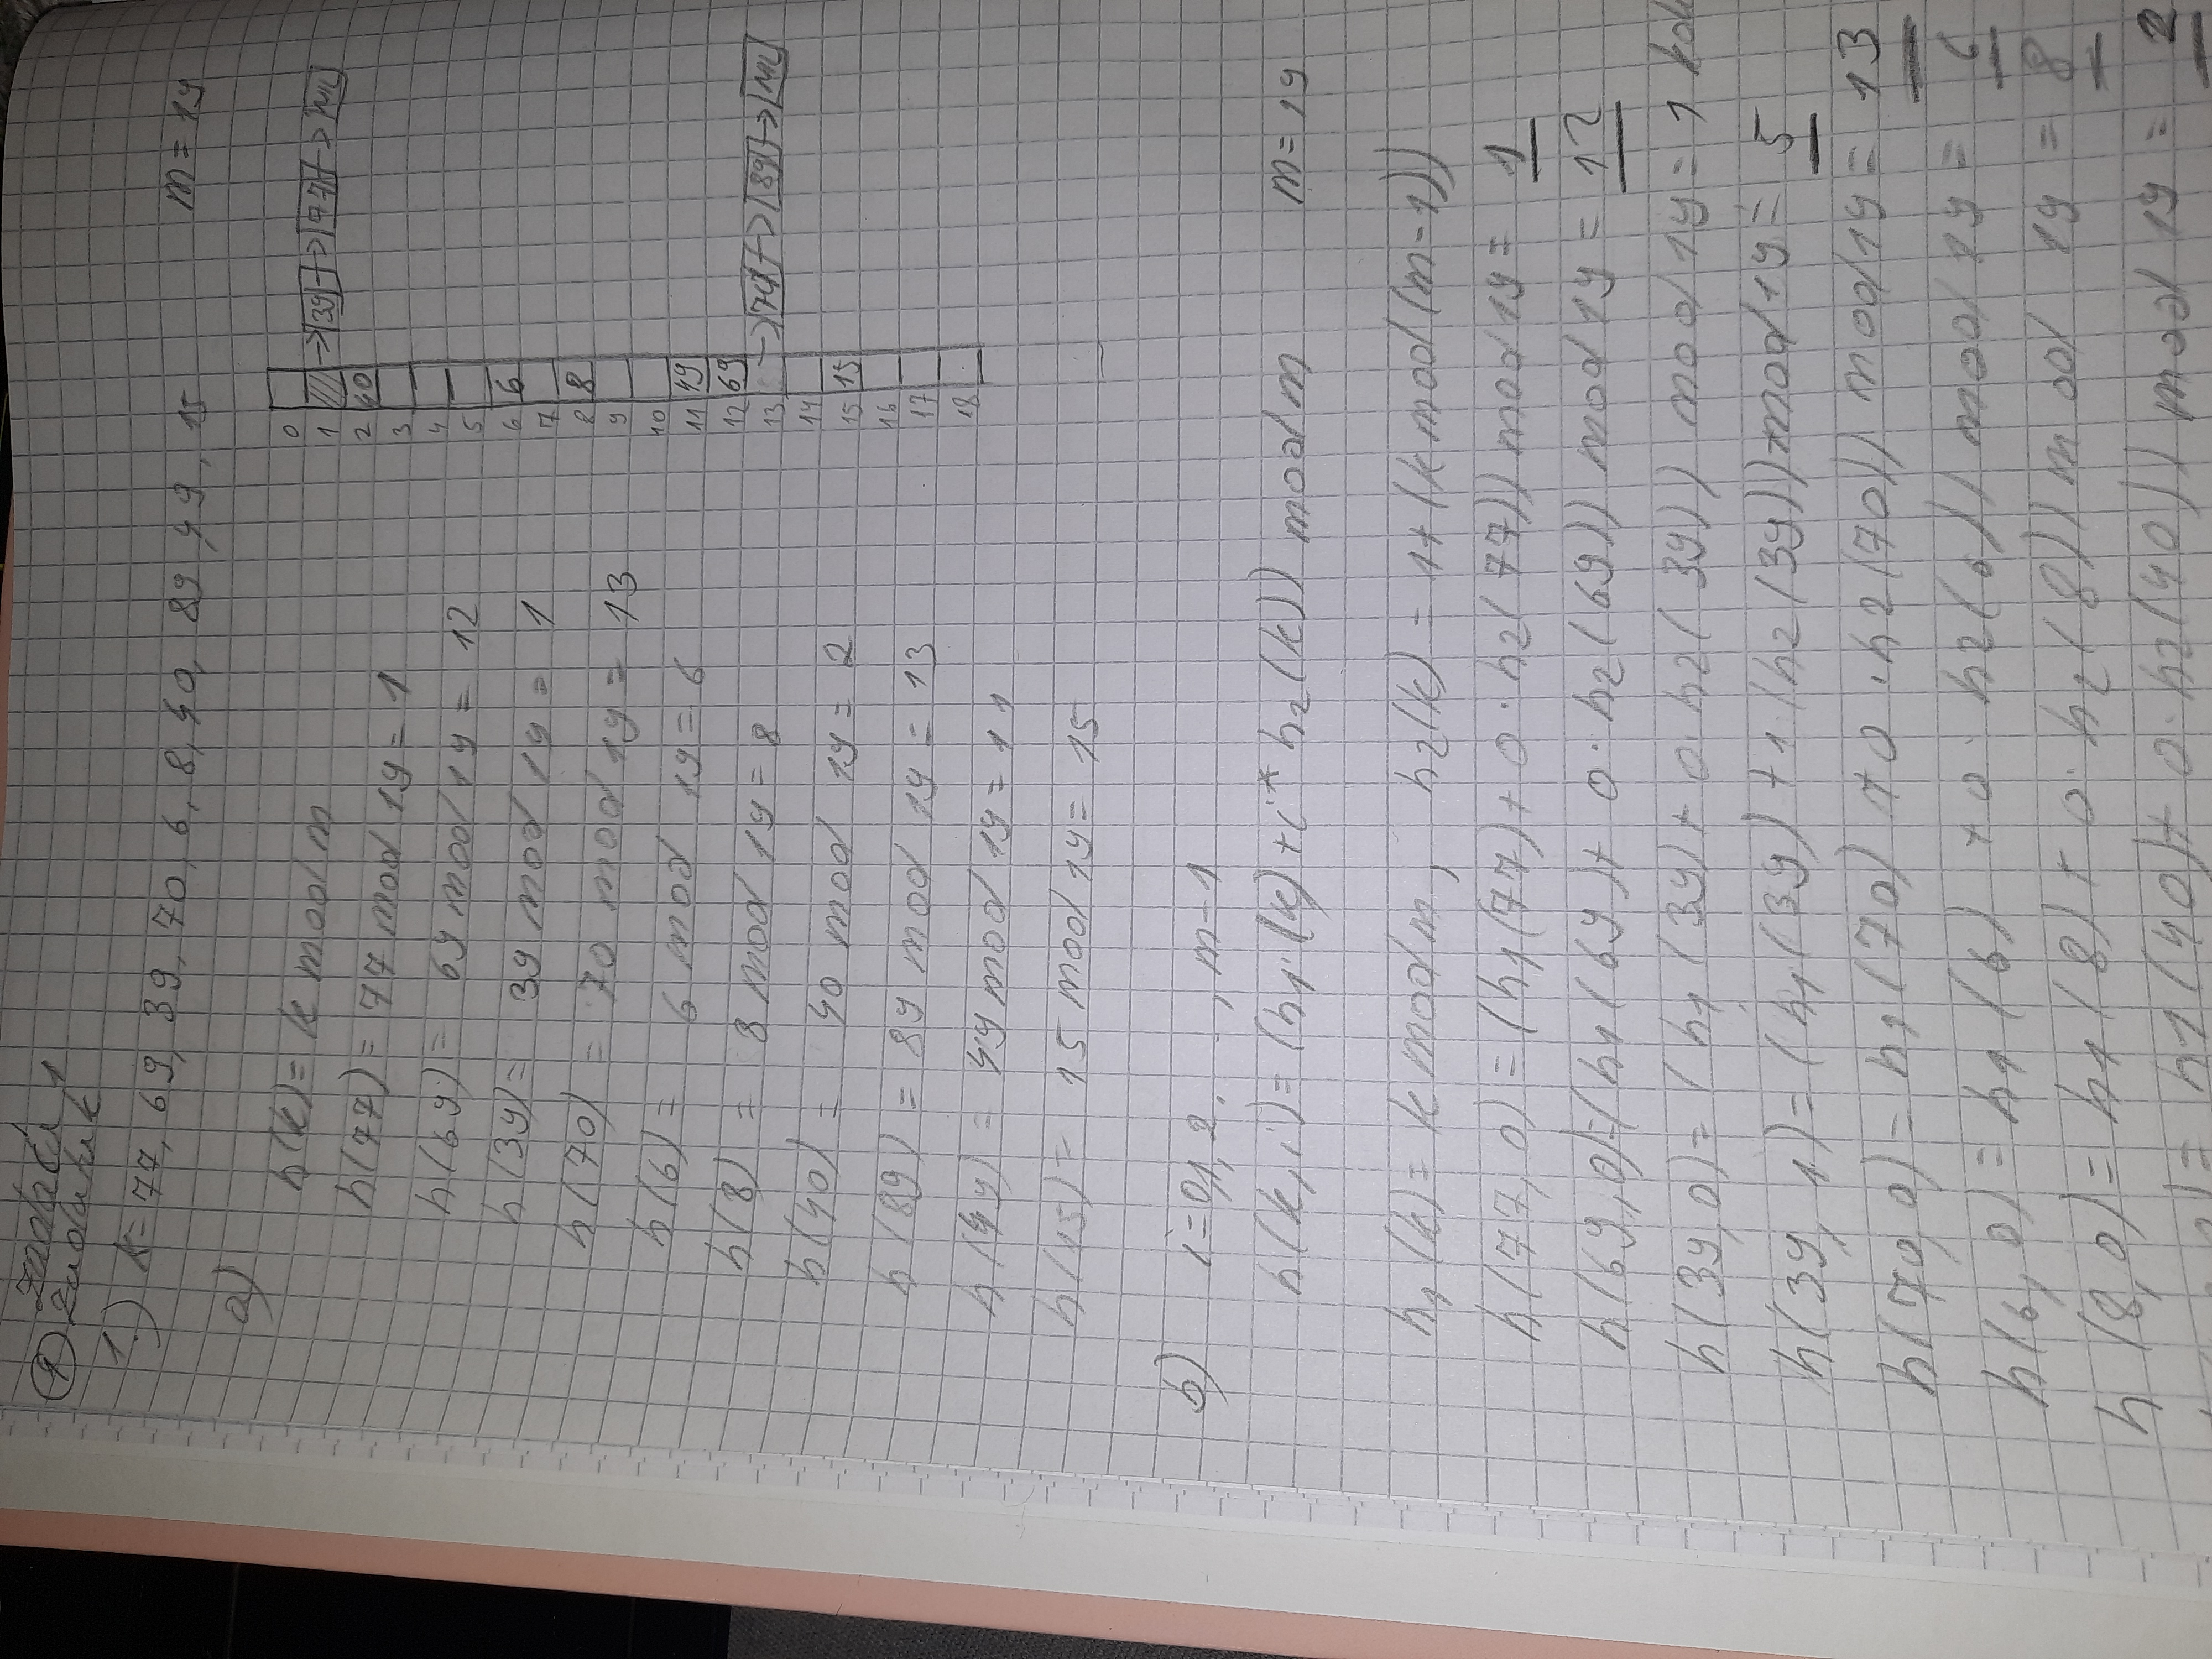 Zadaća 1
① Zadatak
1.) k = 77, 69, 39, 70, 6, 8, 40, 89, 49, 15 m = 19
a)
h(k) = k mod m
h(77) = 77 mod 19 = 1
h(69) = 69 mod 19 = 12
h(39) = 39 mod 19 = 1
h(70) = 70 mod 19 = 13
h(6) = 6 mod 19 = 6
h(8) = 8 mod 19 = 8
h(40) = 40 mod 19 = 2
h(89) = 89 mod 19 = 13
h(49) = 49 mod 19 = 11
h(15) = 15 mod 19 = 15
0
1 → 39 → 77 → NIL
2 40
3
4
5
6 6
7
8 8
9
10
11 49
12 69
13 → 70 → 89 → NIL
14
15 15
16
17
18
b) i = 0,1,2, . . . , m-1
h(k,i) = (h1(k) + i * h2(k)) mod m m = 19
h1(k) = k mod m, h2(k) = 1+(k mod (m-1))
h(77,0) = (h1(77) + 0 · h2(77)) mod 19 = 1
h(69,0) = (h1(69) + 0 · h2(69)) mod 19 = 12
h(39,0) = (h1(39) + 0 · h2(39)) mod 19 = 1
h(39, 1) = (h1(39) + 1 (h2(39)) mod 19 = 5
h(70,0) = h1(70) + 0 · h2(70)) mod 19 = 13
h(6,0) = h1(6) + 0 · h2(6)) mod 19 = 6
h(8,0) = h1(8) + 0 · h2(8)) mod 19 = 8
= h1(40) + 0 · h2(40)) mod 19 = 2